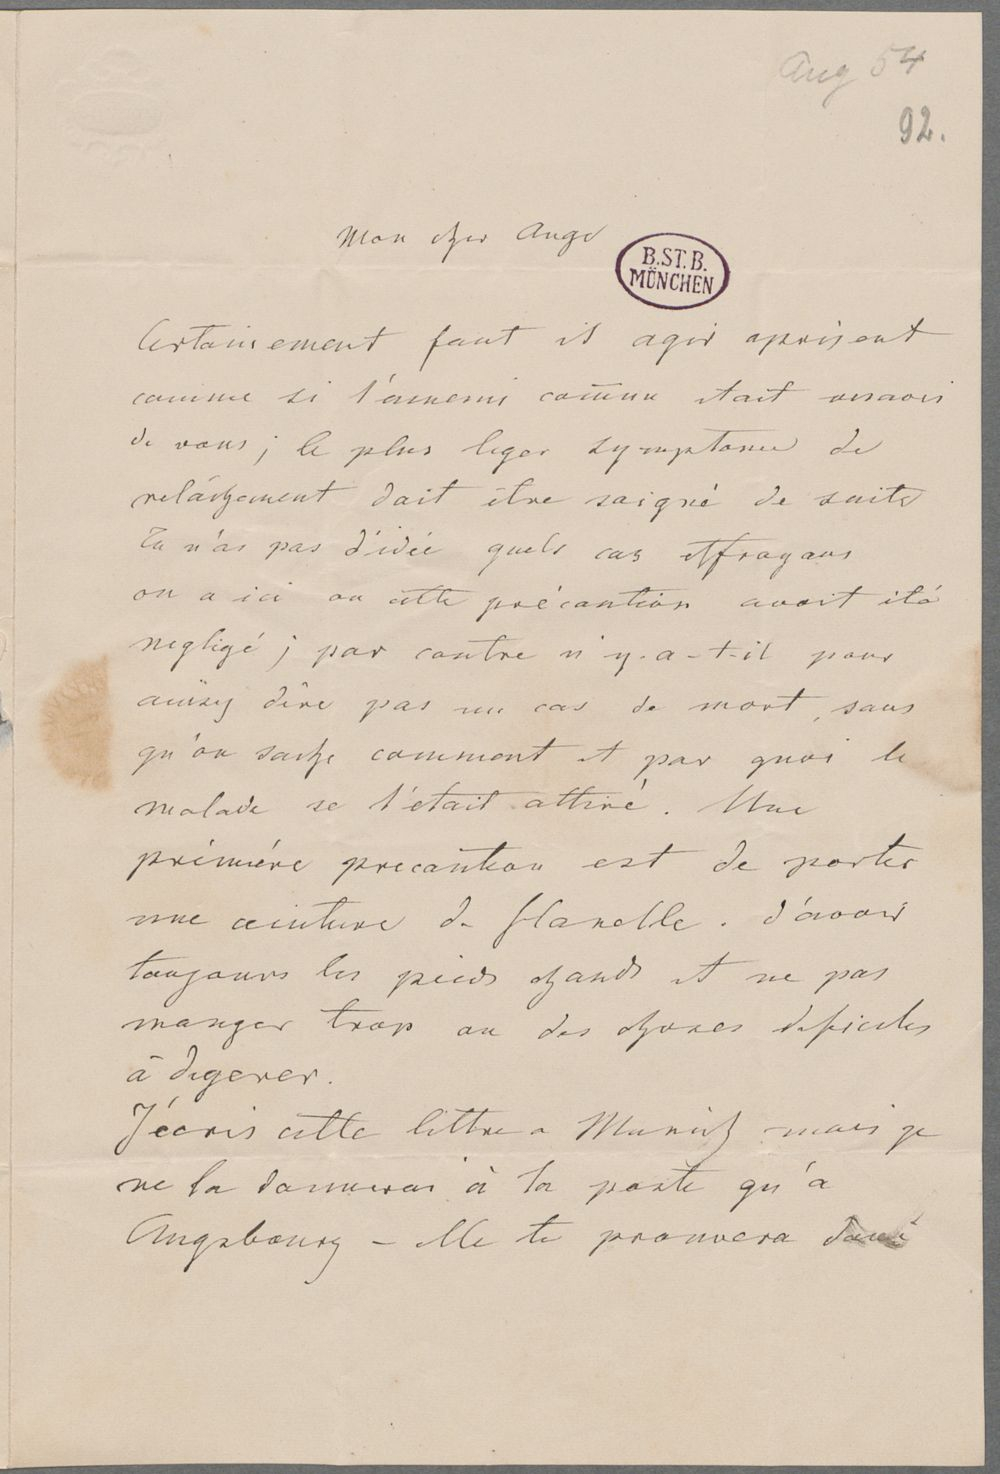 Aug 54
92.
Mon cher Ange
B.ST.B.
MÜNCHEN
Certainement faut il agir aprisent
comme si l'ennemi com̄un etait visavis
de vous; le plus leger symptome de
relâchement doit être soigné de suite
Tu n'as pas d'idée quels cas effrayans
on a ici ou cette précaution avait été
negligé; par contre n'y-a-t-il pour
ainsy dire pas un cas de mort, sans
qu'on sache comment et par quoi le
malade se l'etait attiré. Une
prémiére precaution est de porter
une ceinture de flanelle. d'avoir
toujours les pieds chauds et ne pas
manger trop ou des choses deficiles
à digerer.
J'écris cette lettre a Munich mais je
ne la donnerai à la poste qu'a
Augsbourg – elle te prouvera